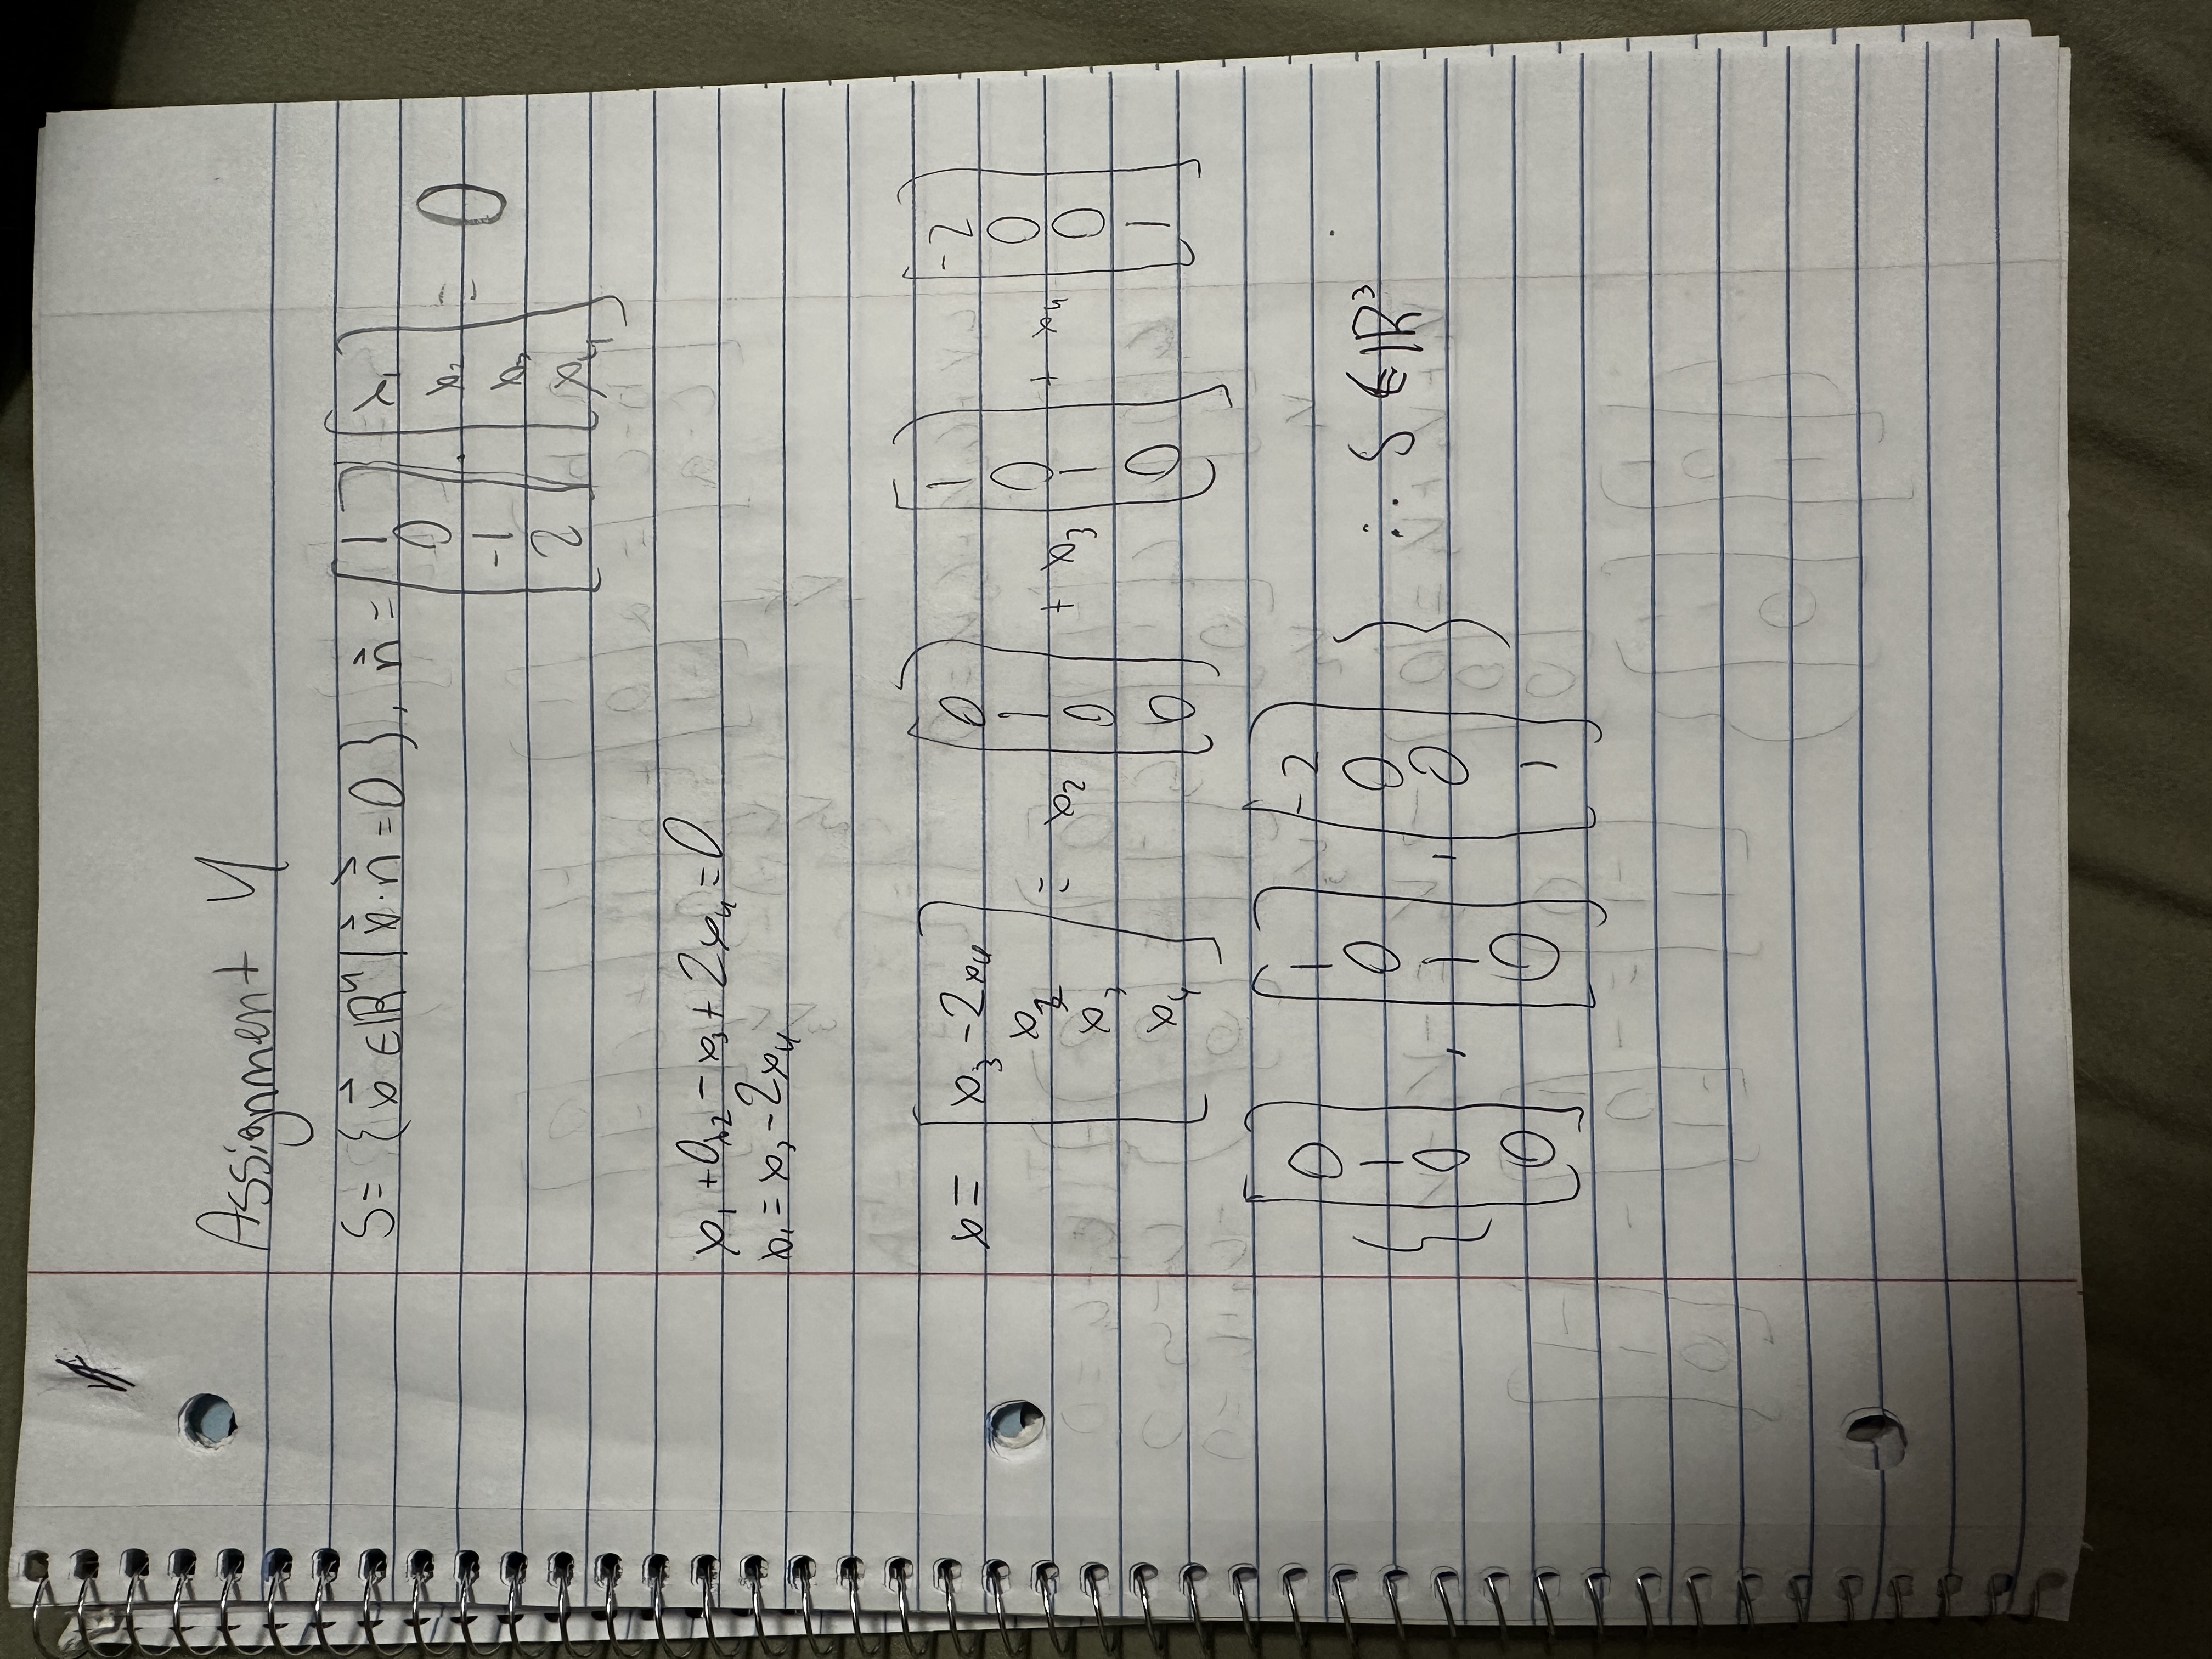 Assignment 4
S = { x⃗ ∈ ℝ⁴ | x⃗ · n⃗ = 0 }, n⃗ = [1 0 -1 2] · [x₁ x₂ x₃ x₄] = 0
x₁ + 0x₂ - x₃ + 2x₄ = 0
x₁ = x₃ - 2x₄
x = [x₃ - 2x₄ x₂ x₃ x₄] = x₂ [0 1 0 0] + x₃ [1 0 1 0] + x₄ [-2 0 0 1]
{ [0 1 0 0], [1 0 1 0], [-2 0 0 1] } ∴ S ∈ ℝ³